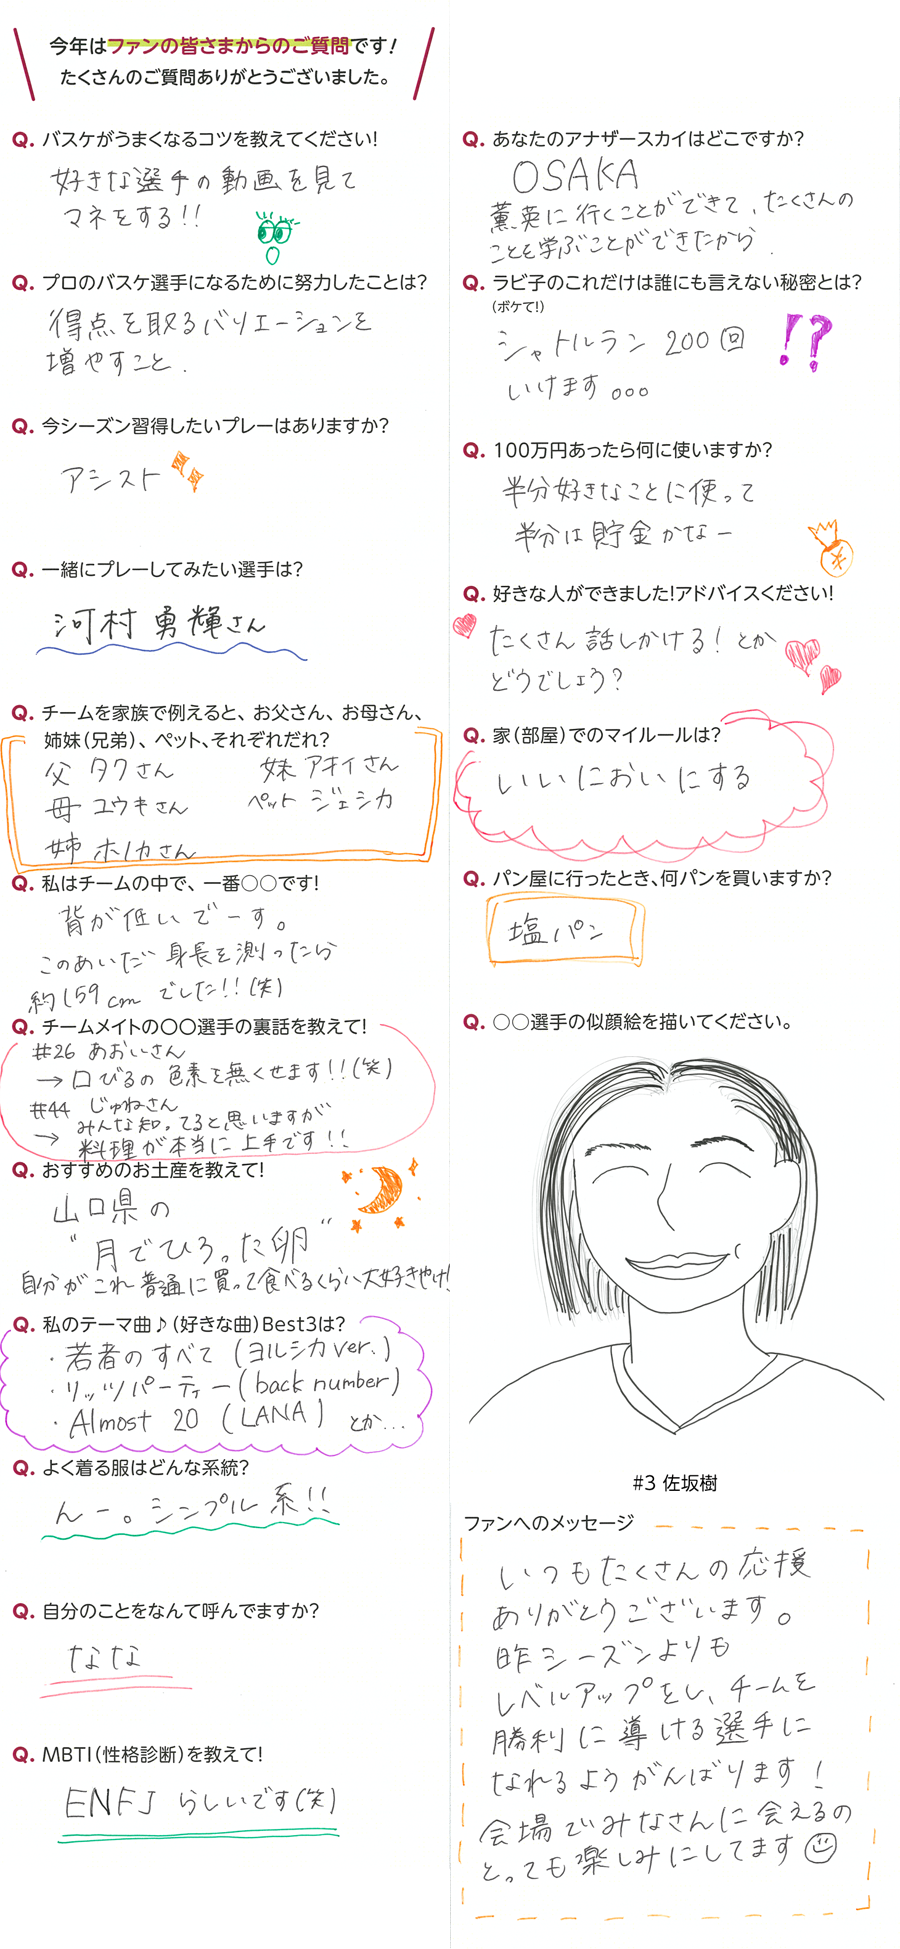 今年はファンの皆さまからのご質問です!
たくさんのご質問ありがとうございました。
Q. バスケがうまくなるコツを教えてください!
好きな選手の動画を見て
マネをする!!
Q. プロのバスケ選手になるために努力したことは?
得点を取るバリエーションを
増やすこと.
Q. 今シーズン習得したいプレーはありますか?
アシスト
Q. 一緒にプレーしてみたい選手は?
河村 勇輝さん
Q. チームを家族で例えると、お父さん、お母さん、
姉妹(兄弟)、ペット、それぞれだれ?
父 タクさん 妹 アキイさん
母 ユウキさん ペット ジェシカ
姉 ホノカさん
Q. 私はチームの中で、一番○○です!
背が低いでーす。
このあいだ 身長を測ったら
約159cm でした!!(笑)
Q. チームメイトの〇〇選手の裏話を教えて!
#26 あおいさん
→口びるの 色素を無くせます!!(笑)
#44 じゅねさん
みんな知ってると思いますが
→ 料理が本当に上手です!!
Q. おすすめのお土産を教えて!
山口県の
"月でひろった卵"
自分がこれ普通に買って食べるくらい大好きやけ!
Q. 私のテーマ曲♪(好きな曲)Best3は?
・若者のすべて (ヨルシカver.)
・リッツパーティー(back number)
・Almost 20 (LANA) とか...
Q. よく着る服はどんな系統?
んー。シンプル系!!
Q. 自分のことをなんて呼んでますか?
なな
Q. MBTI(性格診断)を教えて!
ENFJ らしいです(笑)
Q. あなたのアナザースカイはどこですか?
OSAKA
薫英に行くことができて、たくさんの
ことを学ぶことができたから.
Q. ラビ子のこれだけは誰にも言えない秘密とは?
(ボケて!)
シャトルラン 200回
いけます。。。
!?
Q. 100万円あったら何に使いますか?
半分好きなことに使って
半分は貯金かなー
Q. 好きな人ができました!アドバイスください!
たくさん話しかける!とか
どうでしょう?
Q. 家(部屋)でのマイルールは?
いいにおいにする
Q. パン屋に行ったとき、何パンを買いますか?
塩パン
Q. ○○選手の似顔絵を描いてください。
#3 佐坂樹
ファンへのメッセージ
いつもたくさんの応援
ありがとうございます。
昨シーズンよりも
レベルアップをし、チームを
勝利に導ける選手に
なれるようがんばります!
会場でみなさんに会えるの
とっても楽しみにしてます